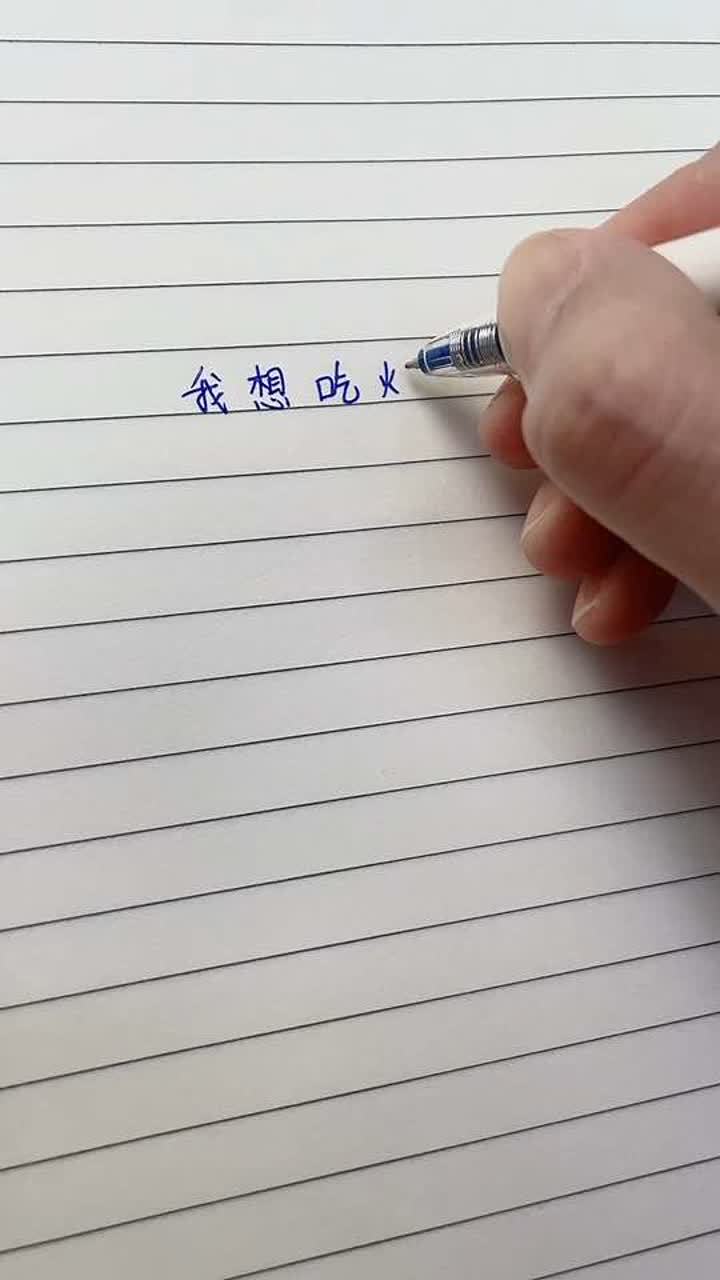 我想吃火